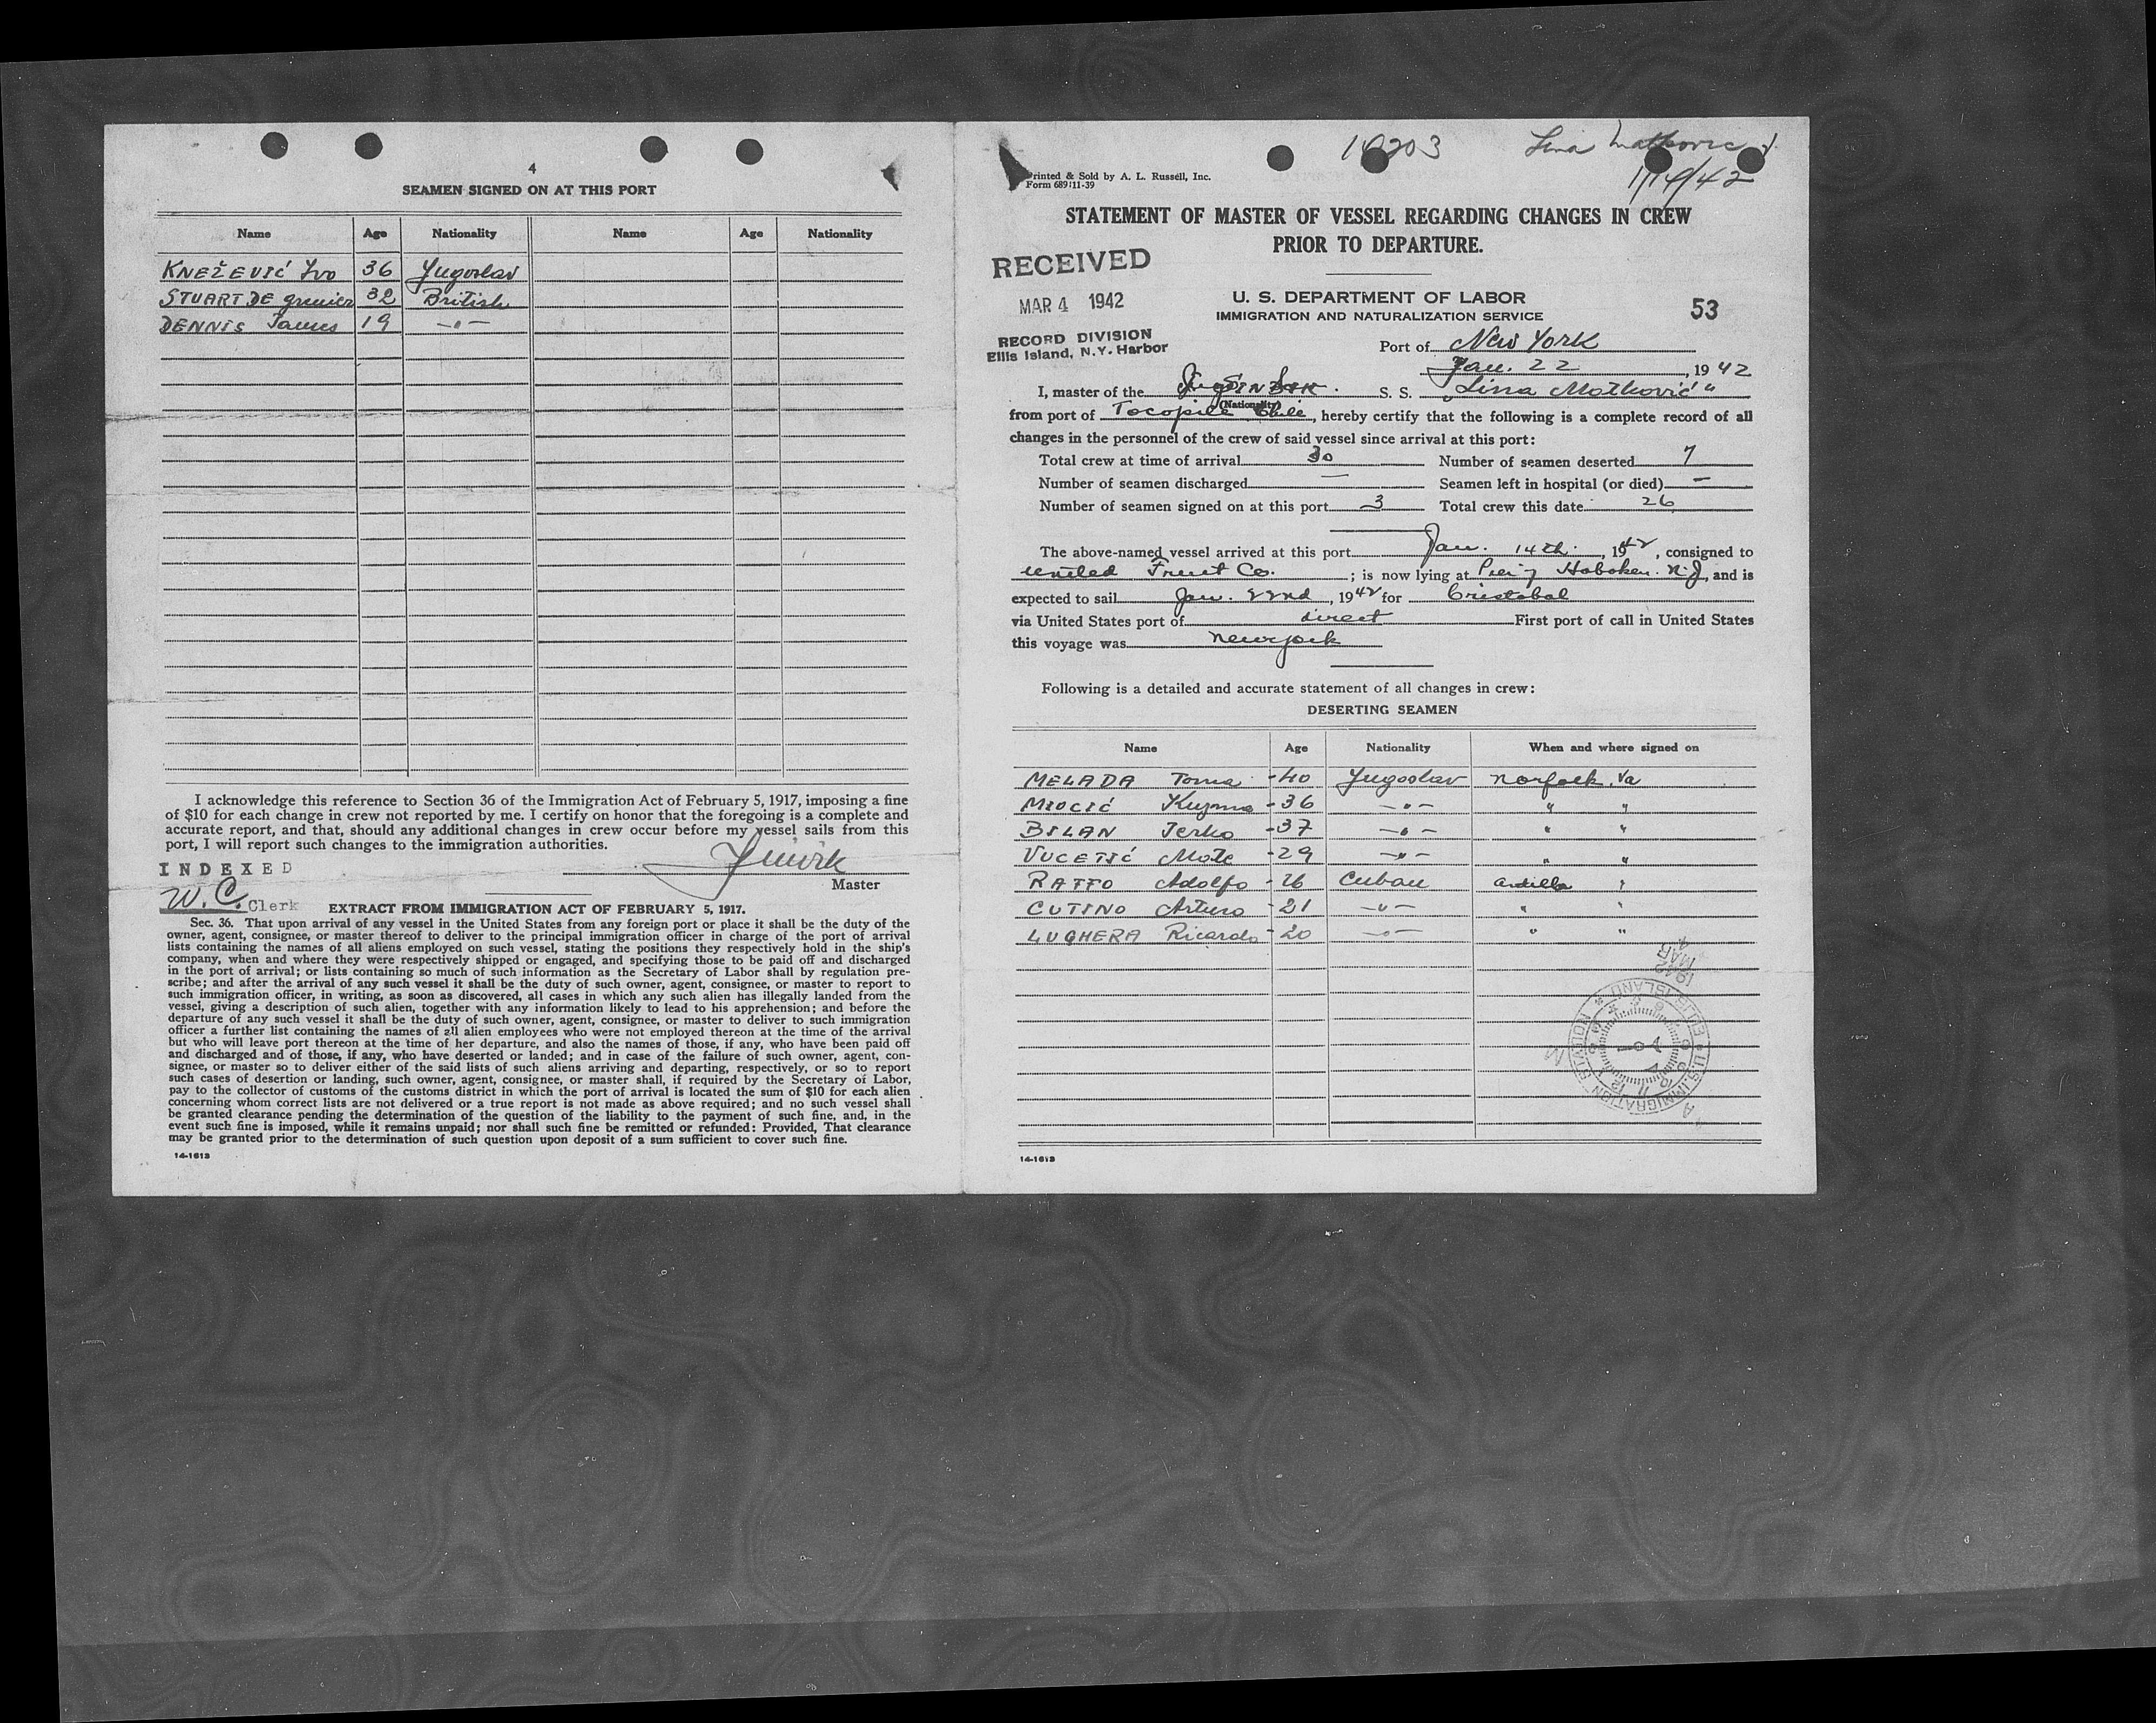 4
SEAMEN SIGNED ON AT THIS PORT
Name Age Nationality Name Age Nationality
KNEŽEVIĆ Ivo 36 Yugoslav
STUART DE 32 British
DENNIS James 19 — " —
I acknowledge this reference to Section 36 of the Immigration Act of February 5, 1917, imposing a fine
of $10 for each change in crew not reported by me. I certify on honor that the foregoing is a complete and
accurate report, and that, should any additional changes in crew occur before my vessel sails from this
port, I will report such changes to the immigration authorities.
INDEXED
Master
W. C. Clerk
EXTRACT FROM IMMIGRATION ACT OF FEBRUARY 5, 1917.
Sec. 36. That upon arrival of any vessel in the United States from any foreign port or place it shall be the duty of the
owner, agent, consignee, or master thereof to deliver to the principal immigration officer in charge of the port of arrival
lists containing the names of all aliens employed on such vessel, stating the positions they respectively hold in the ship's
company, when and where they were respectively shipped or engaged, and specifying those to be paid off and discharged
in the port of arrival; or lists containing so much of such information as the Secretary of Labor shall by regulation pre-
scribe; and after the arrival of any such vessel it shall be the duty of such owner, agent, consignee, or master to report to
such immigration officer, in writing, as soon as discovered, all cases in which any such alien has illegally landed from the
vessel, giving a description of such alien, together with any information likely to lead to his apprehension; and before the
departure of any such vessel it shall be the duty of such owner, agent, consignee, or master to deliver to such immigration
officer a further list containing the names of all alien employees who were not employed thereon at the time of the arrival
but who will leave port thereon at the time of her departure, and also the names of those, if any, who have been paid off
and discharged and of those, if any, who have deserted or landed; and in case of the failure of such owner, agent, con-
signee, or master so to deliver either of the said lists of such aliens arriving and departing, respectively, or so to report
such cases of desertion or landing, such owner, agent, consignee, or master shall, if required by the Secretary of Labor,
pay to the collector of customs of the customs district in which the port of arrival is located the sum of $10 for each alien
concerning whom correct lists are not delivered or a true report is not made as above required; and no such vessel shall
be granted clearance pending the determination of the question of the liability to the payment of such fine, and, in the
event such fine is imposed, while it remains unpaid; nor shall such fine be remitted or refunded: Provided, That clearance
may be granted prior to the determination of such question upon deposit of a sum sufficient to cover such fine.
14-1613
Lina Matkovic
1/14/42
Printed & Sold by A. L. Russell, Inc.
Form 689 11-39
STATEMENT OF MASTER OF VESSEL REGARDING CHANGES IN CREW
PRIOR TO DEPARTURE.
RECEIVED
MAR 4 1942
RECORD DIVISION
Ellis Island, N.Y. Harbor
U. S. DEPARTMENT OF LABOR
IMMIGRATION AND NATURALIZATION SERVICE
53
Port of New York
Jan. 22, 1942
I, master of the S. S. "Lina Matković"
(Nationality)
from port of Tocopile Chile, hereby certify that the following is a complete record of all
changes in the personnel of the crew of said vessel since arrival at this port:
Total crew at time of arrival 30 Number of seamen deserted 7
Number of seamen discharged — Seamen left in hospital (or died) —
Number of seamen signed on at this port 3 Total crew this date 26
The above-named vessel arrived at this port Jan. 14th, 1942, consigned to
United Fruit Co.; is now lying at Pier 7 Hoboken. N.J, and is
expected to sail Jan. 22nd, 1942 for Cristobal
via United States port of direct First port of call in United States
this voyage was New york
Following is a detailed and accurate statement of all changes in crew:
DESERTING SEAMEN
Name Age Nationality When and where signed on
MELADA Toma - 40 Yugoslav Norfolk, Va
MIOCIĆ Kuzma - 36 — " — " "
BILAN Jerko - 37 — " — " "
VUCETIĆ Mate - 29 — " — " "
RAFFO Adolfo - 26 Cuban Antilla "
CUTINO Arturo - 21 — " — " "
LUGHERA Ricardo - 20 — " — " "
MAR 4
1942
U.S. IMMIGRATION STATION * ELLIS ISLAND *
14-1613